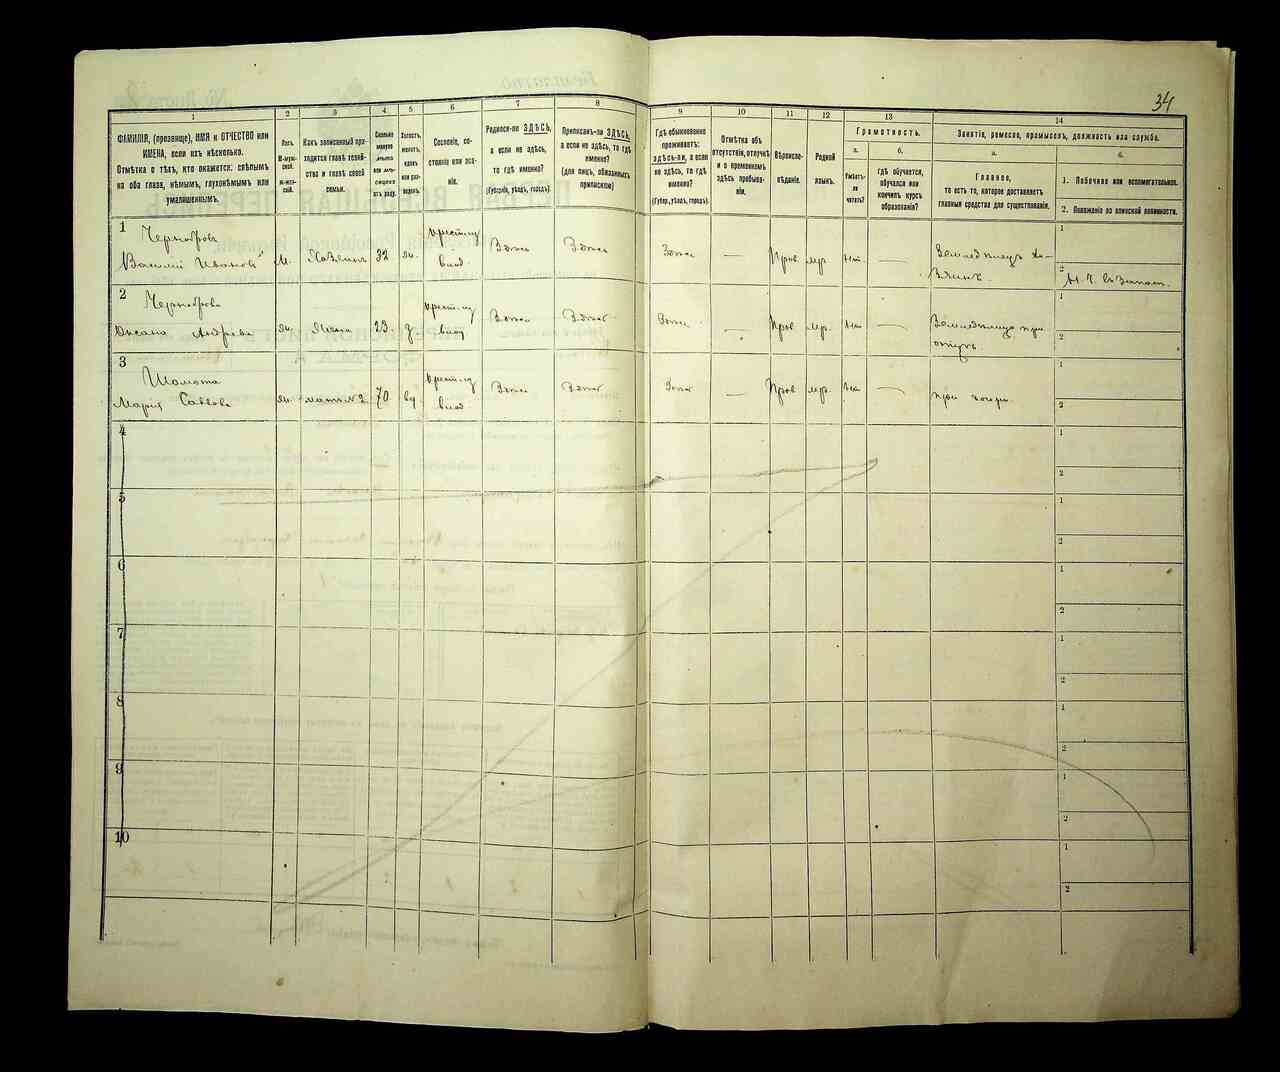 34
1
2
3
4
5
6
7
8
9
10
11
12
13
14
ФАМИЛІЯ, (прозвище), ИМЯ и ОТЧЕСТВО или
ИМЕНА, если ихъ нѣсколько.
Отмѣтка о тѣхъ, кто окажется: слѣпымъ
на оба глаза, нѣмымъ, глухонѣмымъ или
умалишеннымъ.
Полъ.
М-муж-
ской.
Ж-жен-
скій.
Какъ записанный при-
ходится главѣ хозяй-
ства и главѣ своей
семьи.
Сколько
минуло
лѣтъ
или мѣ-
сяцевъ
отъ роду.
Холостъ,
женатъ,
вдовъ
или раз-
веденъ.
Сословіе, со-
стояніе или зва-
ніе.
Родился-ли ЗДѢСЬ,
а если не здѣсь,
то гдѣ именно?
(Губернія, уѣздъ, городъ).
Приписанъ-ли ЗДѢСЬ,
а если не здѣсь, то гдѣ
именно?
(для лицъ, обязанныхъ
припискою)
Гдѣ обыкновенно
проживаетъ:
здѣсь-ли, а если
не здѣсь, то гдѣ
именно?
(Губер., уѣздъ, городъ).
Отмѣтка объ
отсутствіи, отлучкѣ
и о временномъ
здѣсь пребыва-
ніи.
Вѣроиспо-
вѣданіе.
Родной
языкъ.
Грамотность.
а.
Умѣетъ-
ли
читать?
б.
гдѣ обучается,
обучался или
кончилъ курсъ
образованія?
Занятіе, ремесло, промыселъ, должность или служба.
а.
Главное,
то есть то, которое доставляетъ
главныя средства для существованія.
б.
1. Побочное или вспомогательное.
2. Положеніе по воинской повинности.
1
Чернобровъ
Василій Ивановъ М. Хозяинъ 32 Здѣсь Здѣсь Здѣсь — Прав мр. Нт. —
1
2
2
Черноброва
Оксана Андреева Жена 23. Здѣсь Здѣсь Здѣсь — Прав мр. —
1
2
3
Шамота
Марія Саввова мать №2 70 Здѣсь Здѣсь Здѣсь — Прав мр. — при дочери.
1
2
4
1
2
5
1
2
6
1
2
7
1
2
8
1
2
9
1
2
10
1
2